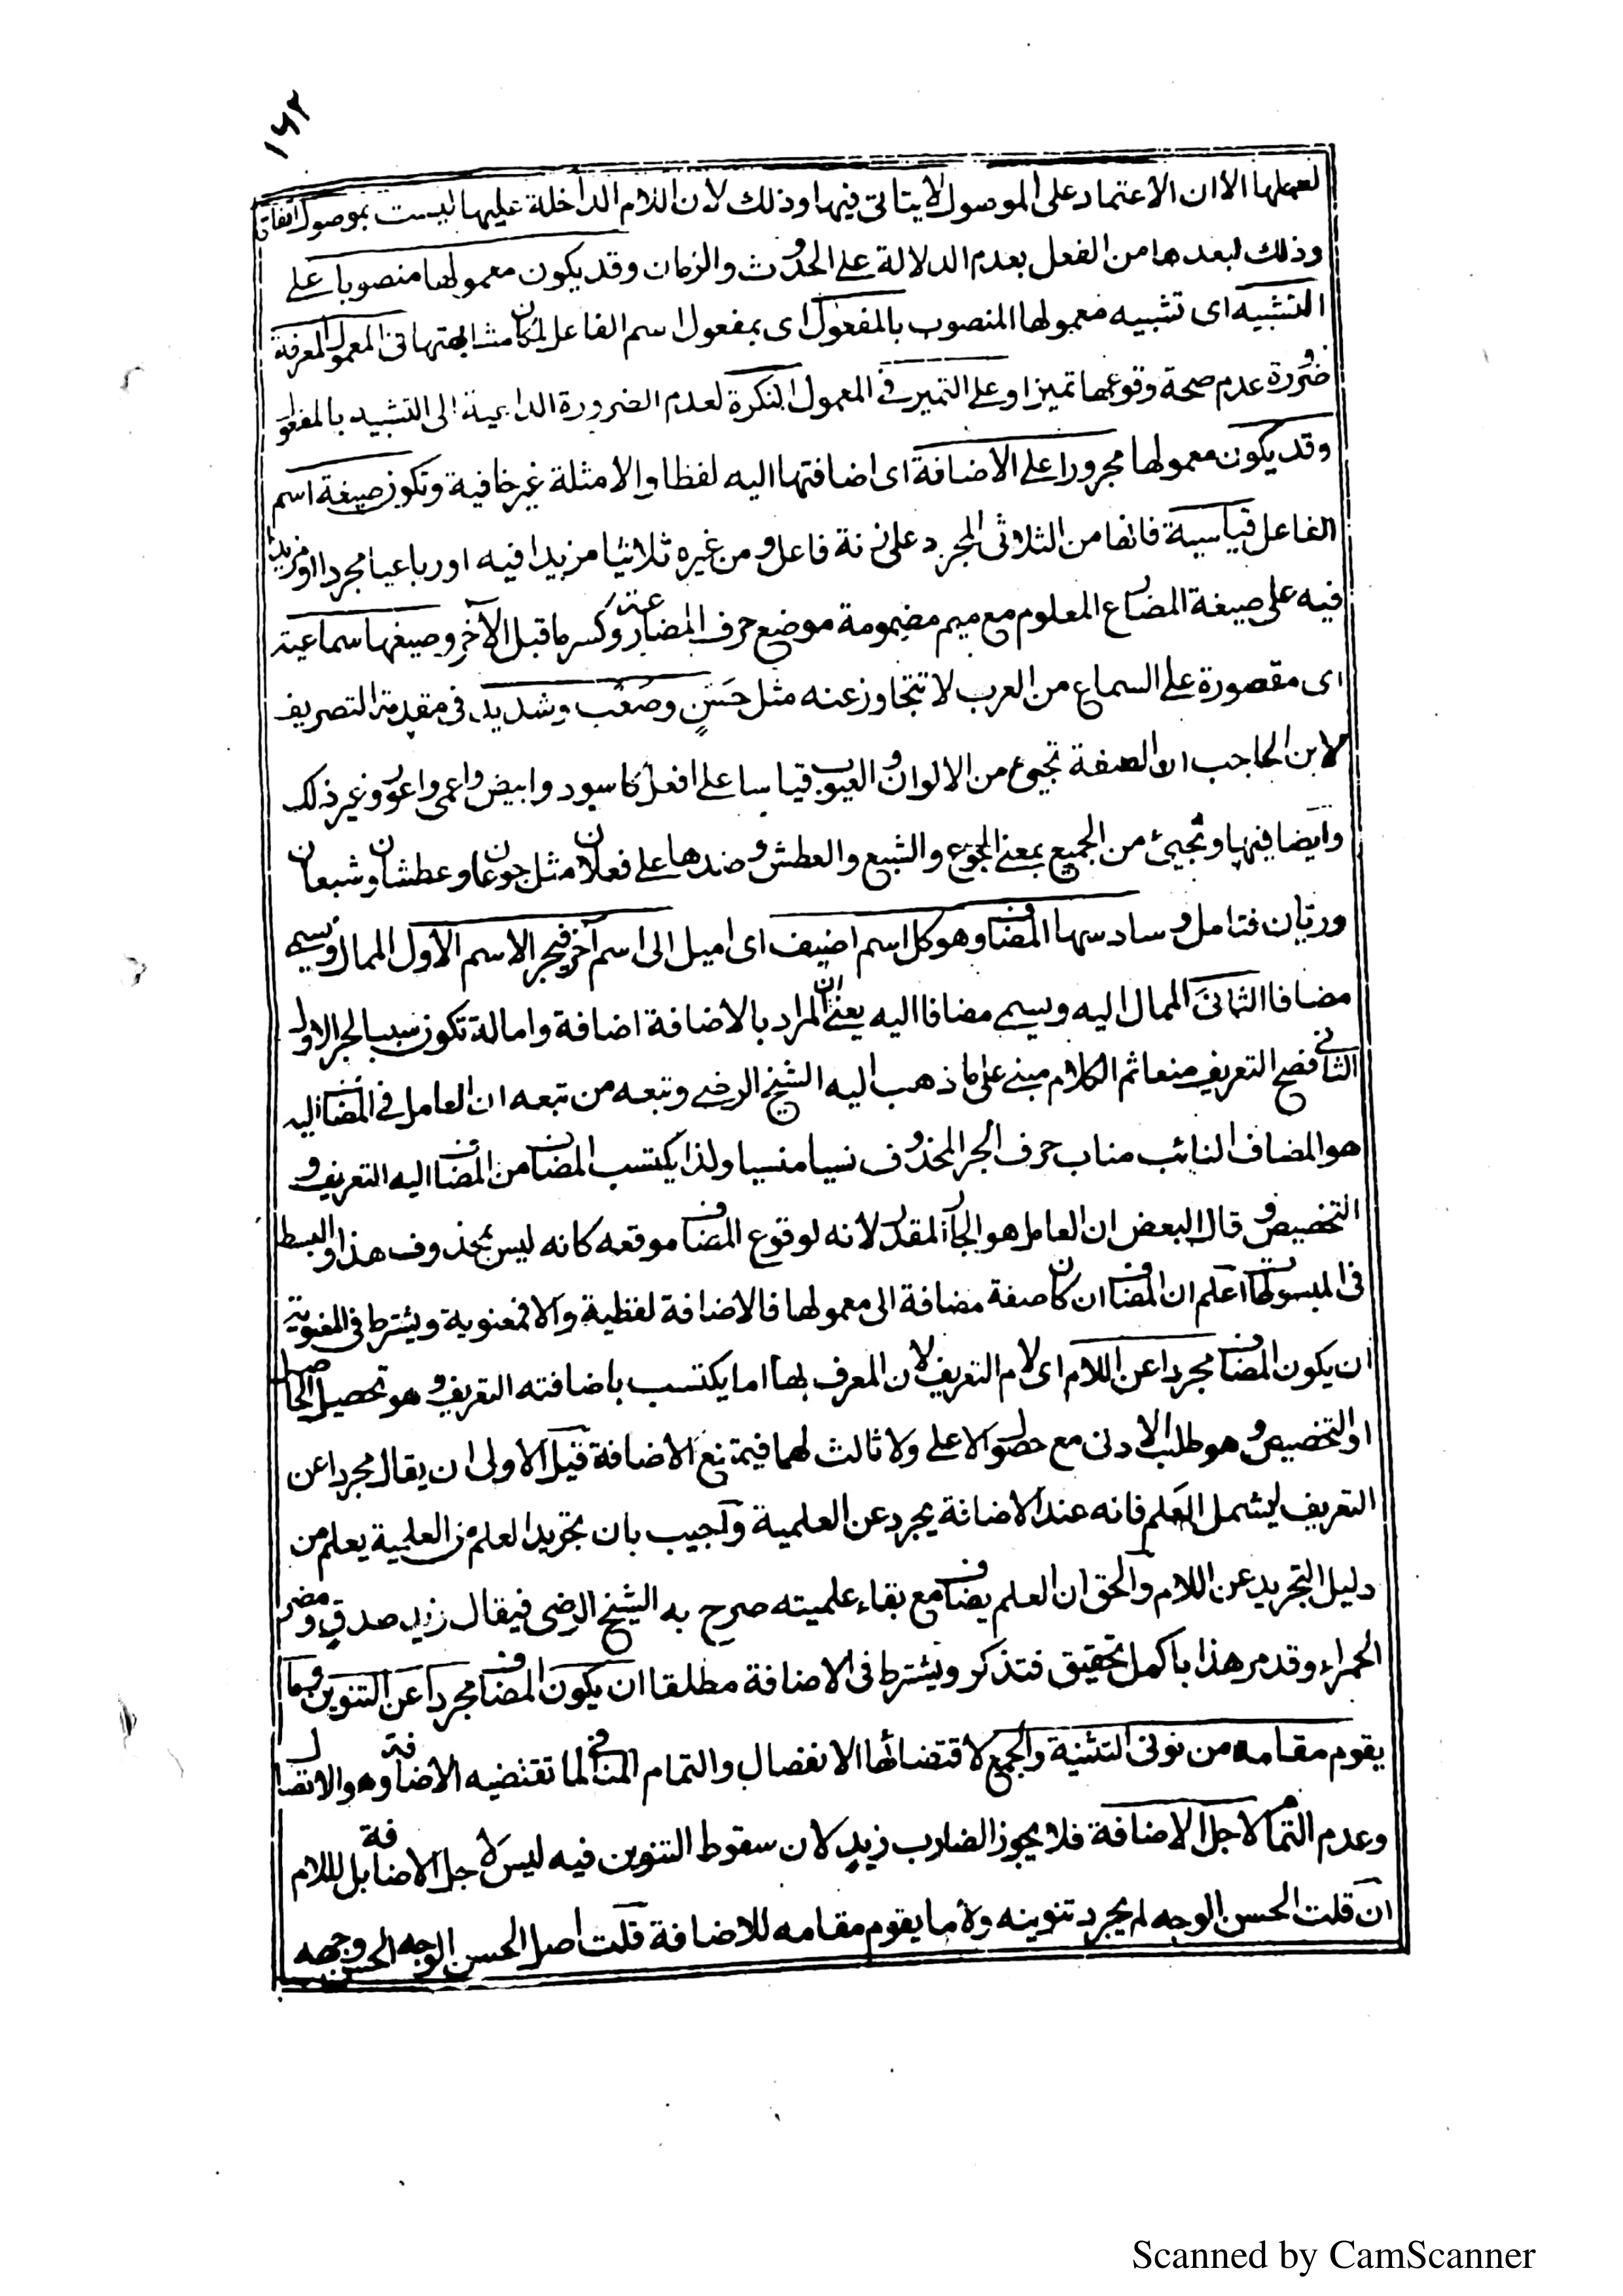 ١٦٢
لعملها الا ان الاعتماد على الموصول لا يتاتى فيها وذلك لان اللام الداخلة عليها ليست بموصول اتفاق
وذلك لبعدها من الفعل بعدم الدلالة على الحدوث والزمان وقد يكون معمولها منصوبا على
التشبيه اى تشبيه معمولها المنصوب بالمفعول اى بمفعول اسم الفاعل لمكان مشابهتها فى المعمول المعرفة
ضرورة عدم صحة وقوعها تميزا وعلى التميز فى المعمول النكرة لعدم الضرورة الداعية الى التشبيه بالمفعول
وقد يكون معمولها مجرورا على الاضافة اى اضافتها اليه لفظا والامثلة غير خافية وتكون صيغة اسم
الفاعل قياسية فانها من الثلاثى المجرد على زنة فاعل ومن غيره ثلاثيا مزيدا فيه او رباعيا مجردا او مزيدا
فيه على صيغة المضارع المعلوم مع ميم مضمومة موضع حرف المضارعة وكسر ما قبل الآخر وصيغها سماعية
اى مقصورة على السماع من العرب لا تتجاوز عنه مثل حَسَنٍ وصَعْب وشديد فى مقدمة التصريف
لابن الحاجب ان الصفة تجيئ من الالوان والعيوب قياسا على افعل كاسود وابيض واعمى واعور وغير ذلك
وايضا فيها وتجيئ من الجميع بمعنى الجوع والشبع والعطش وضدها على فعلان مثل جوعان وعطشان وشبعان
وريان فتامل وسادسها المضاف وهو كل اسم اضيف اى اميل الى اسم آخر فيجر الاسم الاول الممال ويسمى
مضافا الثانىَ الممال اليه ويسمى مضافا اليه يعنى ان المراد بالاضافة اضافة وامالة تكون سببا لجر الاول
الثانى فصح التعريف منعا ثم الكلام مبنى على ما ذهب اليه الشيخ الرضى وتبعه من تبعه ان العامل فى المضاف اليه
هو المضاف النائب مناب حرف الجر المحذوف نسيا منسيا ولذا يكتسب المضاف من المضاف اليه التعريف و
التخصيص وقال البعض ان العامل هو الجار المقدر لانه لوقوع المضاف موقعه كانه ليس بمحذوف هذا والبسط
فى المبسوطات اعلم ان المضاف ان كان صفة مضافة الى معمولها فالاضافة لفظية والا فمعنوية ويشترط فى المعنوية
ان يكون المضاف مجردا عن اللام اى لام التعريف لان المعرف بها اما يكتسب باضافته التعريف وهو تحصيل الحاصل
او التخصيص وهو طلب الادنى مع حصول الاعلى ولا ثالث لهما فيمتنع الاضافة قيل الاولى ان يقال مجردا عن
التعريف ليشمل العَلم فانه عند الاضافة يجرد عن العلمية وآجيب بان تجريد العلم من العلمية يعلم من
دليل التجريد عن اللام والحق ان العلم يضاف مع بقاء علميته صرح به الشيخ الرضى فيقال زيد صدقٍ ومضر
الحمراء وقد مر هذا باكمل تحقيق فتذكر ويشترط فى الاضافة مطلقا ان يكون المضاف مجردا عن التنوين وما
يقوم مقامه من نونى التثنية والجمع لاقتضائها الانفصال والتمام المنافى لما تقتضيه الاضافة وهو الاتصال
وعدم التمام لاجل الاضافة فلا يجوز الضارب زيدٍ لان سقوط التنوين فيه ليس لاجل الاضافة بل للام
ان قلت الحسن الوجه لم يجرد تنوينه ولا ما يقوم مقامه للاضافة قلت اصل الحسن الوجه الحسن وجهه
Scanned by CamScanner